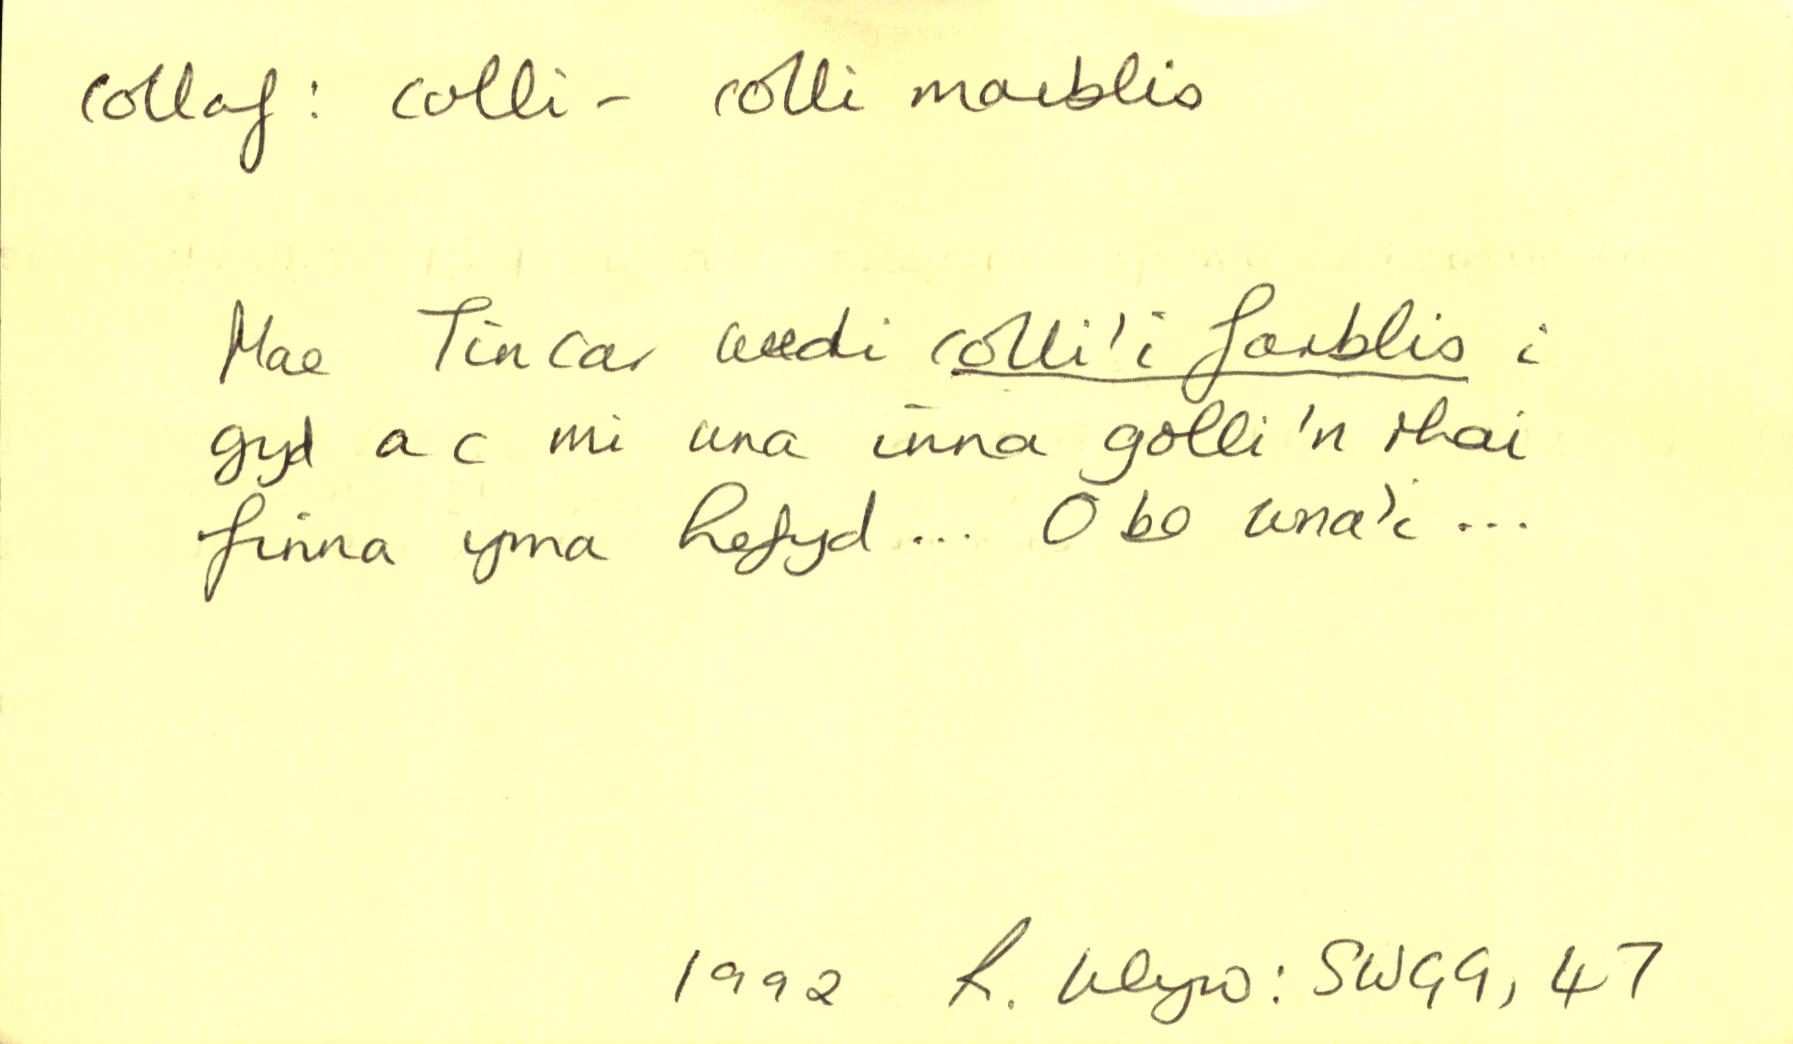 collaf: colli - colli marblis
Mae Tincar wedi colli'i farblis i
gyd a c mi wna inna golli'n rhai
finna yma hefyd... O bo wna'i...
1992 R. Wlyw: SWGG, 47